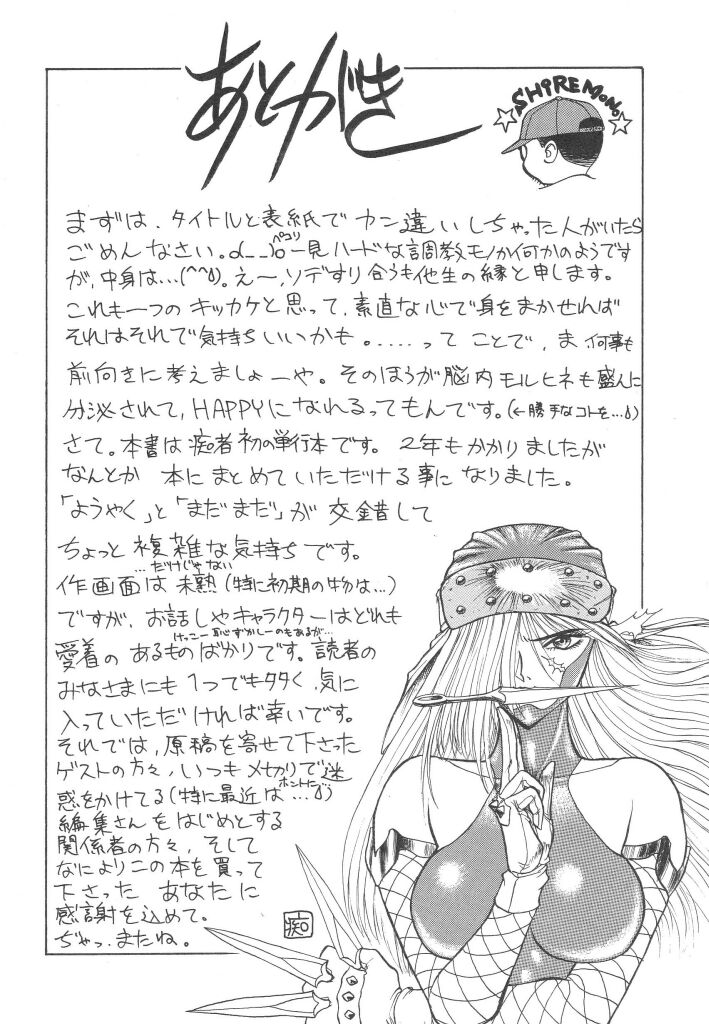 あとがき
SHIREMONO
まずは、タイトルと表紙でカン違いしちゃった人がいたら
ペコリ
ごめんなさい。d(_ _)o 一見ハードな調教モノか何かのようです
が、中身は…(^^;)。え〜、ソデすり合うも他生の縁と申します。
これも一つのキッカケと思って、素直な心で身をまかせれば
それはそれで気持ちいいかも。.....って ことで、ま、何事も
前向きに考えましょーや。そのほうが脳内モルヒネも盛んに
分泌されて、HAPPYになれるってもんです。(←勝手なコトを…;)
さて。本書は痴者初の単行本です。2年もかかりましたが
なんとか 本にまとめていただける事になりました。
「ようやく」と「まだまだ」が 交錯して
ちょっと 複雑な気持ちです。
…だけじゃない
作画面は 未熟(特に初期の物は…)
ですが、お話しやキャラクターはどれも
けっこー恥ずかしーのもあるが…
愛着の あるものばかりです。読者の
みなさまにも 1つでも多く、気に
入っていただければ幸いです。
それでは、原稿を寄せて下さった
ゲストの方々、いつも〆切りで迷
ホントに…
惑をかけてる(特に最近は…;)
編集さんをはじめとする
関係者の方々、そして
なによりこの本を買って
下さった あなたに
感謝を込めて。
ぢゃっ、またね。
痴